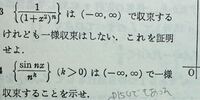 3 {1/(1+x²)ⁿ} は (−∞, ∞) で収束する
けれども一様収束はしない. これを証明せ
よ.
4 {sin nx/nᵏ} (k>0) は (−∞, ∞) で一様
収束することを示せ.
0